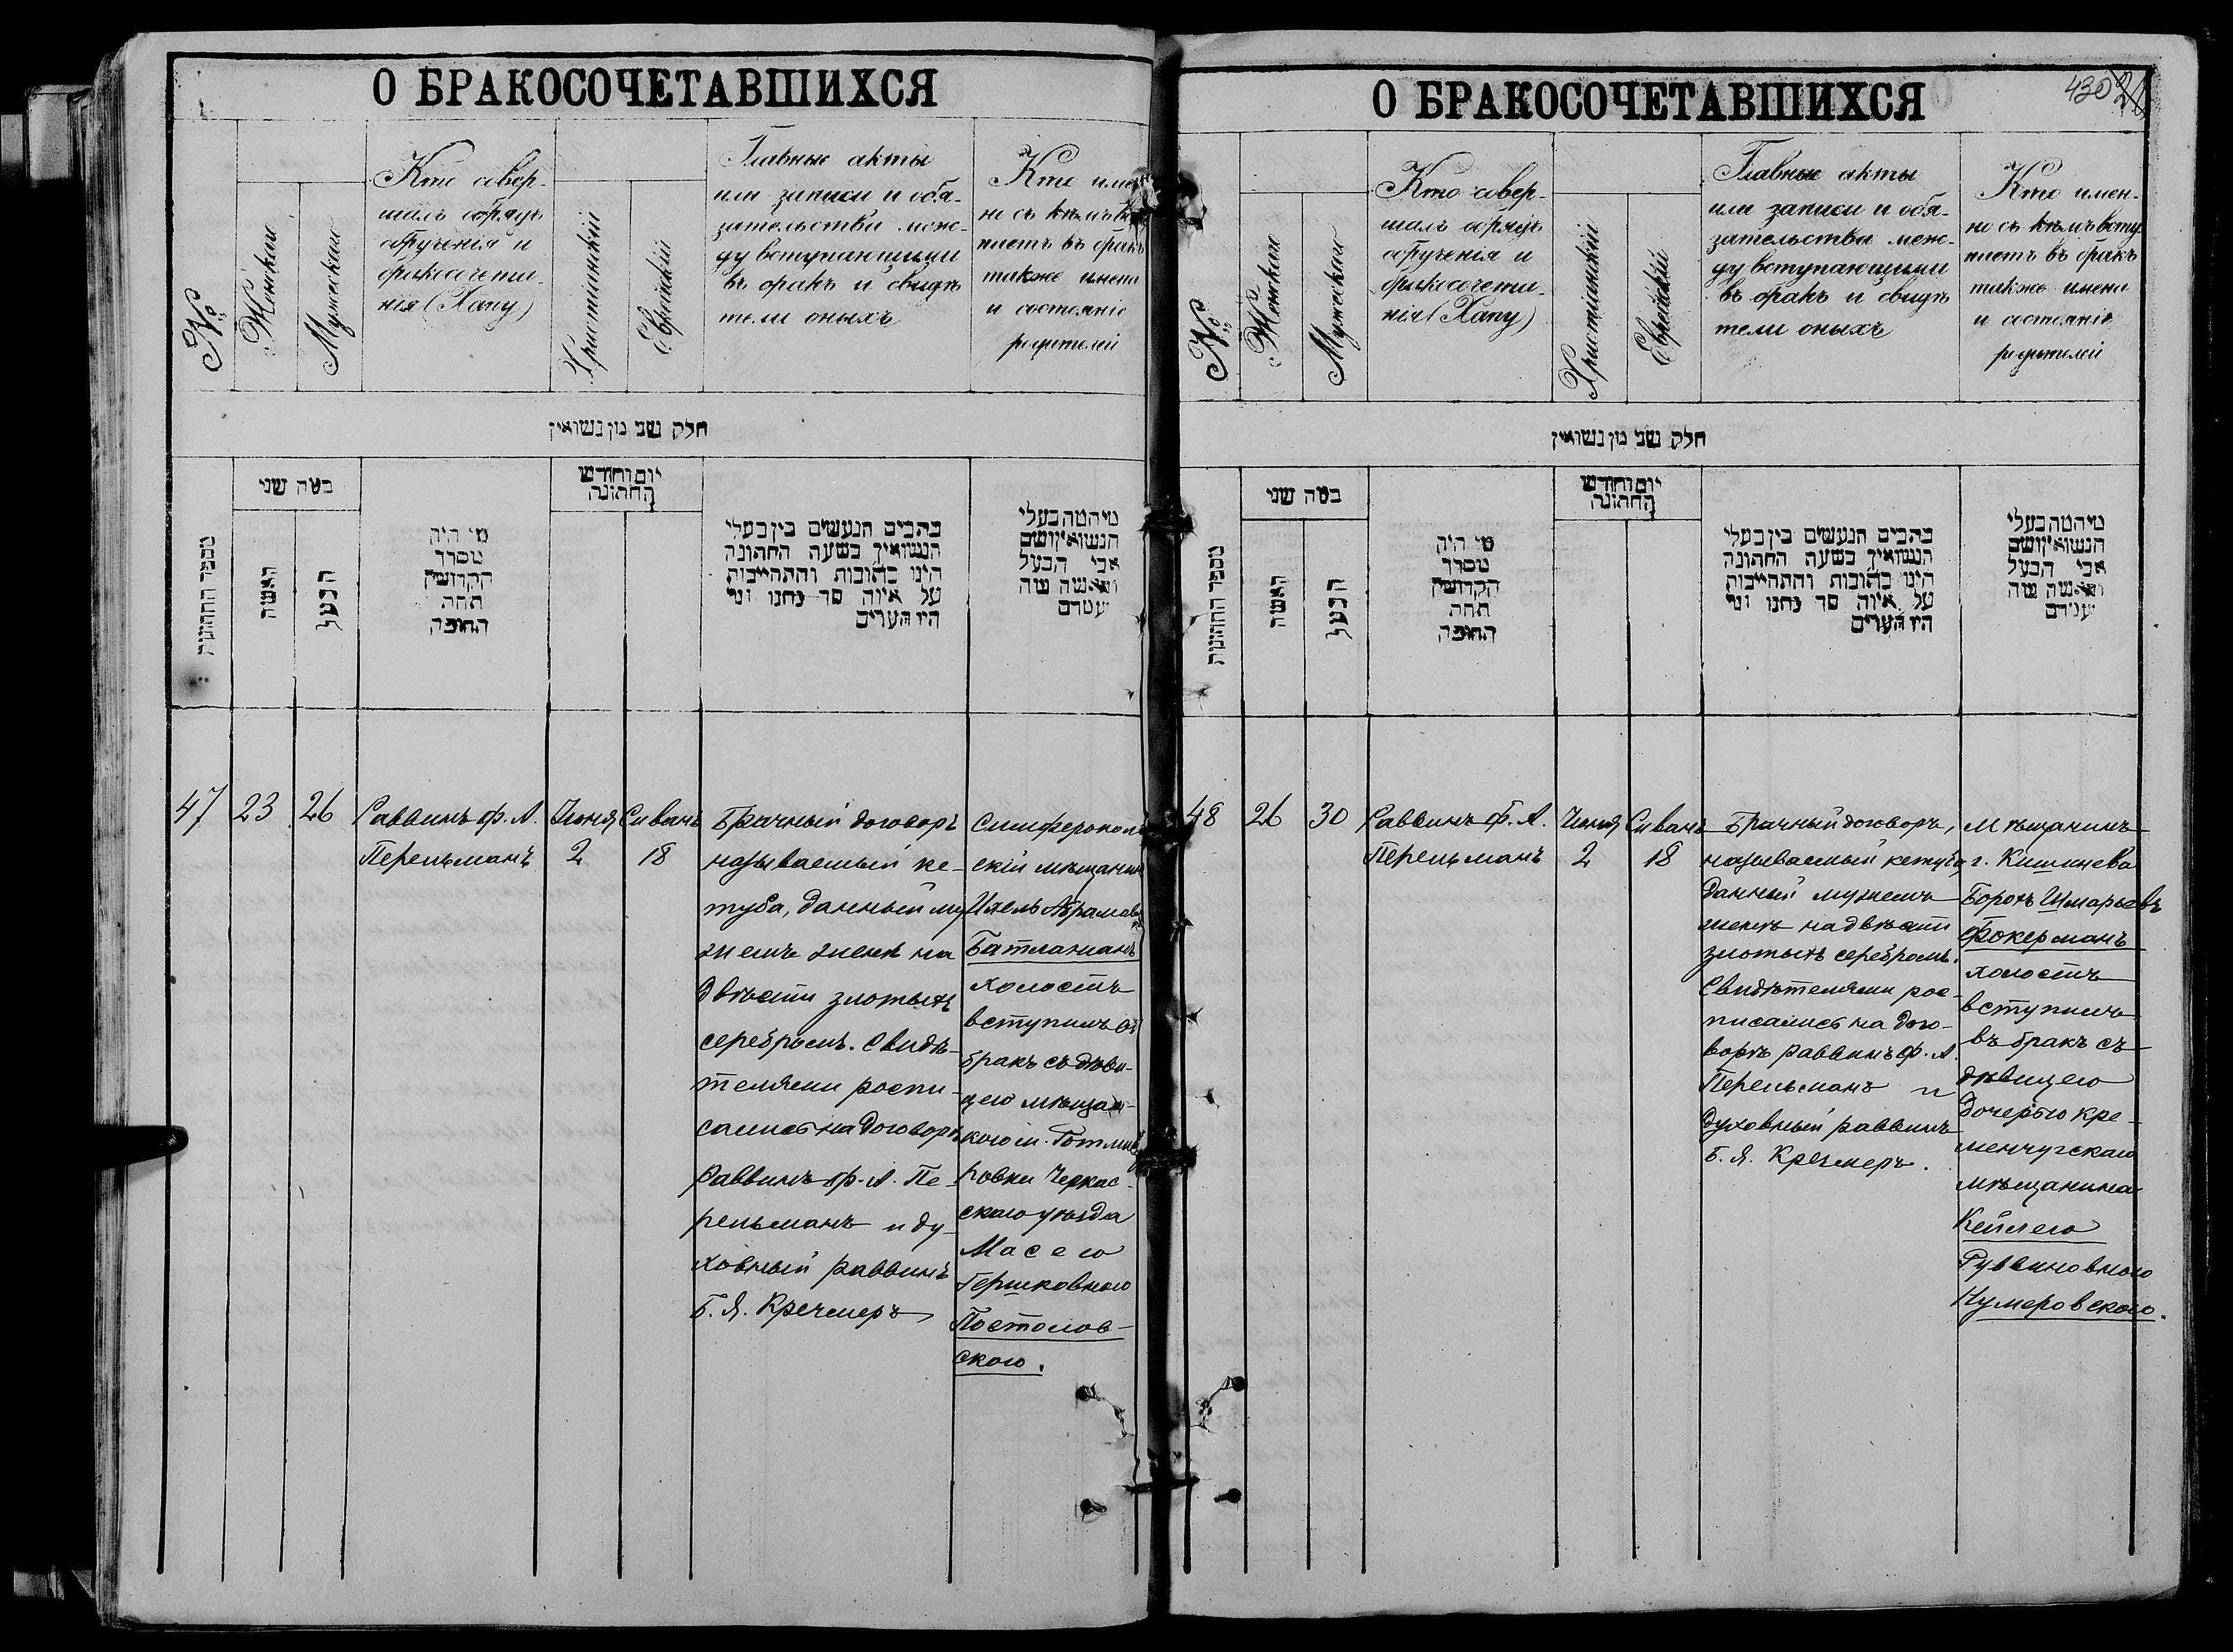 О БРАКОСОЧЕТАВШИХСЯ
№
Женская
Мужеская
Кто совер-
шалъ обрядъ
обрученія и
бракосочета-
нія (Хапу)
Христіанскій
Еврейскій
Главные акты
или записи и обя-
зательства меж-
ду вступающими
въ бракъ и свидѣ
тели оныхъ
Кто имен
но съ кѣмъ в
паетъ въ бракъ
также имена
и состояніе
родителей
חלק שני מן נשואין
מספר החתונות
כמה שני
האשה
הבעל
מי היה
מסדר
הקדושין
תחת
החופה
יום וחודש
החתונה
כתבים הנעשים בין בעלי
הנשואין בשעת החתונה
היינו כתובות והתחייבות
על איזה סך נתנו ומי
היו העדים
מי המה בעלי
הנשואין ושם
אבי הבעל
והאשה
47
23
26
Раввинъ Ф. А.
Перельманъ
Іюня
2
Сиванъ
18
Брачный договоръ
называемый ке-
туба, данный му
жемъ женѣ на
двѣсти злотыхъ
серебромъ. Свидѣ-
телями роспи-
сались на договорѣ
Раввинъ Ф. А. Пе-
рельманъ и ду-
ховный раввинъ
Б. Я. Кречмеръ
Симферополь
скій мѣщанинъ
Ихель Абрамов
Батланъ
холостъ
вступилъ въ
бракъ съ дѣви-
цею мѣщан-
кою м.
ровки Черкас-
скаго уѣзда
Масею
Гершковною
Постолов-
скою.
О БРАКОСОЧЕТАВШИХСЯ
430
№
Женская
Мужеская
Кто совер-
шалъ обрядъ
обрученія и
бракосочета-
нія (Хапу)
Христіанскій
Еврейскій
Главные акты
или записи и обя-
зательства меж-
ду вступающими
въ бракъ и свидѣ
тели оныхъ
Кто имен-
но съ кѣмъ всту
паетъ въ бракъ
также имена
и состояніе
родителей
חלק שני מן נשואין
מספר החתונות
כמה שני
האשה
הבעל
מי היה
מסדר
הקדושין
תחת
החופה
יום וחודש
החתונה
כתבים הנעשים בין בעלי
הנשואין בשעת החתונה
היינו כתובות והתחייבות
על איזה סך נתנו ומי
היו העדים
מי המה בעלי
הנשואין ושם
אבי הבעל
והאשה
48
26
30
Раввинъ Ф. А.
Перельманъ
Іюня
2
Сиванъ
18
Брачный договоръ,
называемый кетуба,
данный мужемъ
женѣ на двѣсти
злотыхъ серебромъ.
Свидѣтелями рос-
писались на дого-
ворѣ раввинъ Ф. А.
Перельманъ и
духовный раввинъ
Б. Я. Кречмеръ.
Мѣщанинъ
г. Кишинева
Борохъ Шмарьевъ
Фокерманъ
холостъ
вступилъ
въ бракъ съ
дѣвицею
дочерью кре-
менчугскаго
мѣщанина
Кейлею
Рувиновною
Кумеровскою.